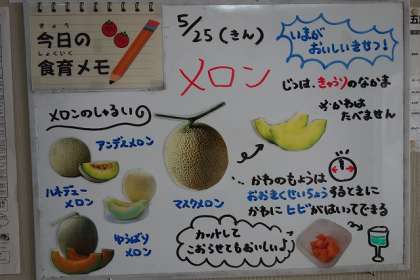 きょう
今日の
しょくいく
食育メモ
5/25(きん)
メロン
いまが
おいしいきせつ!
じつは、きゅうりのなかま
※かわは
たべません
メロンのしゅるい
アンデスメロン
ハネデュー
メロン
ゆうばり
メロン
マスクメロン
かわのもようは
おおきくせいちょうするときに
かわに ヒビがはいってできる
カットして
こおらせてもおいしいよ♪